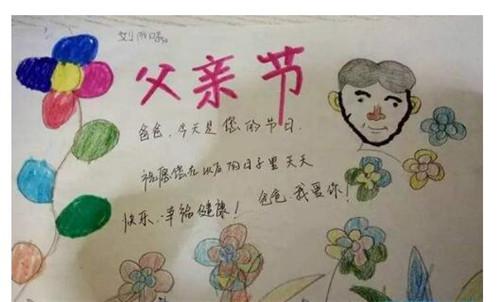 父亲节
爸爸，今天是您的节日.
祝愿您在以后的日子里天天
快乐.幸福健康！爸爸.我爱你！